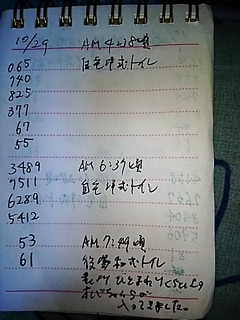 10/29 AM 4:28頃
065 自宅洋式トイレ
740
825
377
67
55
3489 AM 6:37頃
7511 自宅洋式トイレ
6289
5412
53 AM 7:49頃
61 後常和式トイレ
ひとまわりくらいの
入ってました。